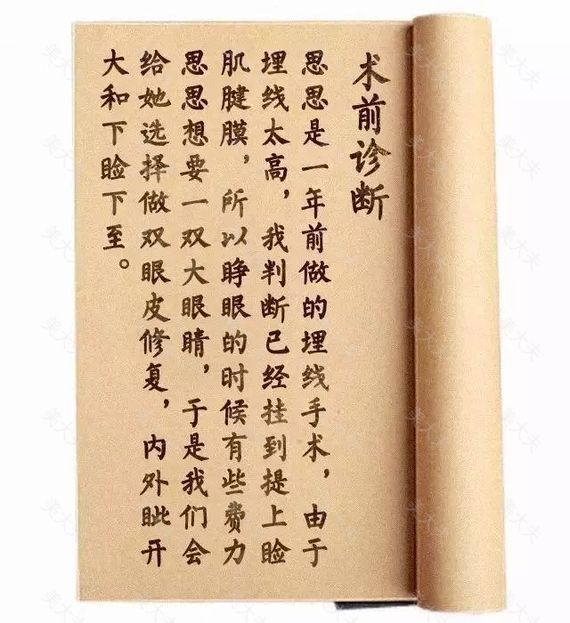 术前诊断
思思是一年前做的埋线手术，由于
埋线太高，我判断已经挂到提上睑
肌腱膜，所以睁眼的时候有些费力
思思想要一双大眼睛，于是我们会
给她选择做双眼皮修复，内外眦开
大和下睑下至。
美大夫